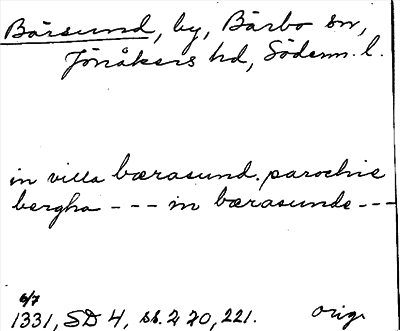 Bärsund, by, Bärbo sn,
Jönåkers hd, Söderm. l.
in villa bœrasund. parochie
bergha --- in bœrasunde ---
6/7
1331, SD 4, ss. 220, 221. orig.